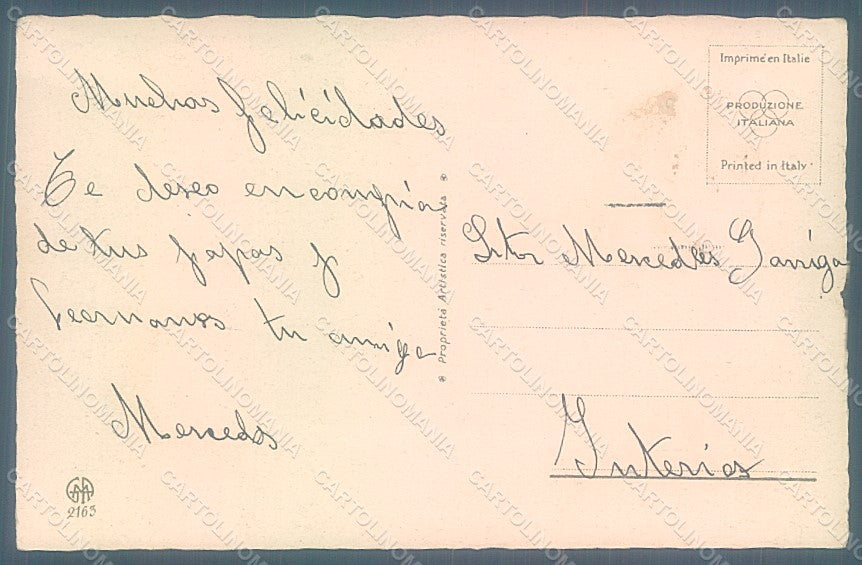 Muchas felicidades
Te deseo en compñia
de tus papas y
hermanos tu amiga
Mercedes
GAM
2163
* Proprietà Artistica riservata *
Imprimé en Italie
PRODUZIONE
ITALIANA
Printed in Italy
Mercedes Garriga
Interior
CARTOLINOMANIA